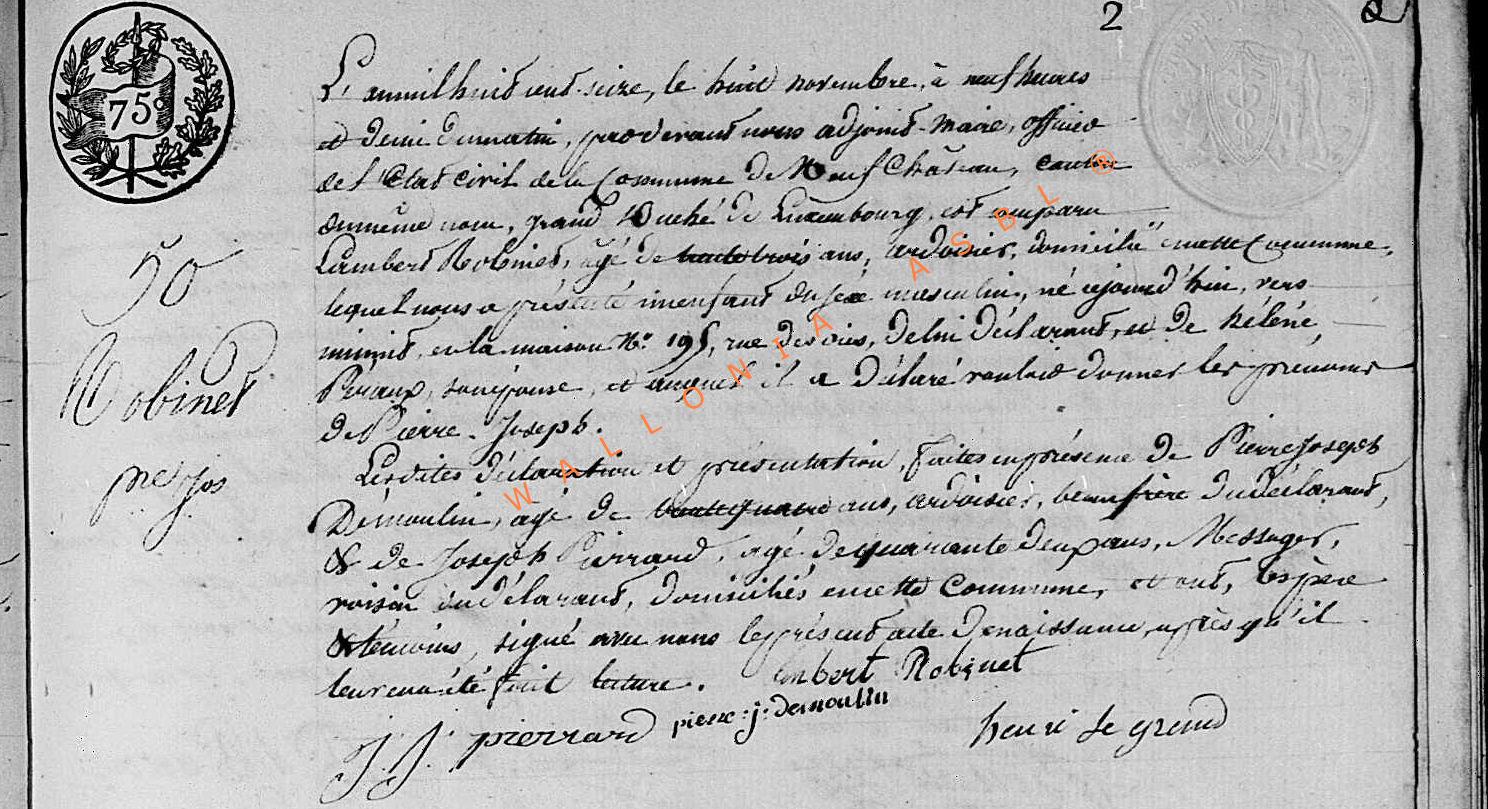 2
2
75c
50
Robinet
pre Jos
L'an mil huit cent seize, le huit novembre, à neuf heures
et demi du matin, par devant nous adjoint-maire, officier
de l'Etat civil de la Commune de Neufchâteau, canton
du même nom, grand Duché de Luxembourg, est comparu
Lambert Robinet, agé de trente trois ans, ardoisier, domicilié en cette Commune,
lequel nous a présenté un enfant du sexe masculin, né cejourd'hui, vers
minuit, en la maison No. 195, rue des oies, de lui déclarant, et de hélène
Péraux, son épouse, et auquel il a déclaré vouloir donner les prénoms
de Pierre-Joseph.
Lesdites déclaration et présentation, faites en présence de Pierre Joseph
Demoulin, agé de trente quatre ans, ardoisier, beaufrère du déclarant,
& de Joseph Pierrard, agé de quarante deux ans, Messager,
voisin du déclarant, domiciliés en cette commune, et ont, les père
& témoins, signé avec nous le présent acte de naissance, après qu'il
leur en a été fait lecture.
lambert Robinet
J. J. pierrard
pierre: j: demoulin
henri le grand
WALLONIA ASBL ®